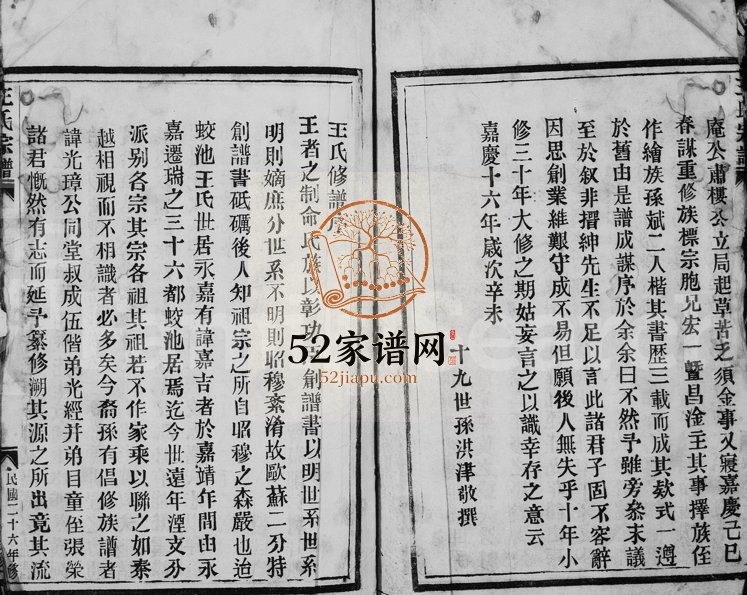 庵公肅樓公立局起草苦乏須金事又寢嘉慶己巳
春謀重修族標宗胞兄宏一暨昌淦主其事擇族侄
作繪族孫斌二人楷其書歴三載而成其欵式一遵
於舊由是譜成謀序於余余曰不然予雖旁叅末議
至於叙非搢紳先生不足以言此諸君子固不容辭
因思創業維艱守成不易但願後人無失乎十年小
修三十年大修之期姑妄言之以識幸存之意云
嘉慶十六年歲次辛未
十九世孫洪津敬撰
王氏修譜序
王者之制命氏族以彰功 創譜書以明世系世系
明則嫡庶分世系不明則昭穆紊淆故歐蘇二公特
創譜書砥礪後人知祖宗之所自昭穆之森嚴也迨
蛟池王氏世居永嘉有諱嘉吉者於嘉靖年間由永
嘉遷瑞之三十六都蛟池居焉迄今世遠年湮支分
派别各宗其宗各祖其祖若不作家乘以聯之如秦
越相視而不相識者必多矣今裔孫有倡修族譜者
諱光璋公同堂叔成伍偕弟光經并弟目童侄張榮
諸君慨然有志而延予纂修溯其源之所出竟其流
王氏宗譜
民國二十六年修
王氏宗譜
52家谱网
52jiapu.com